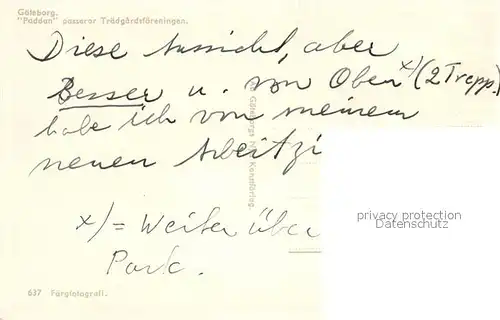 Göteborg.
"Paddan" passerar Trädgårdsföreningen.
Diese Aussicht, aber
Besser u. von Oben x) (2 Trepp.)
habe ich von meinem
neuen Arbeitzi
x) = Weiter über
Park.
privacy protection
Datenschutz
637 Färgfotografi.